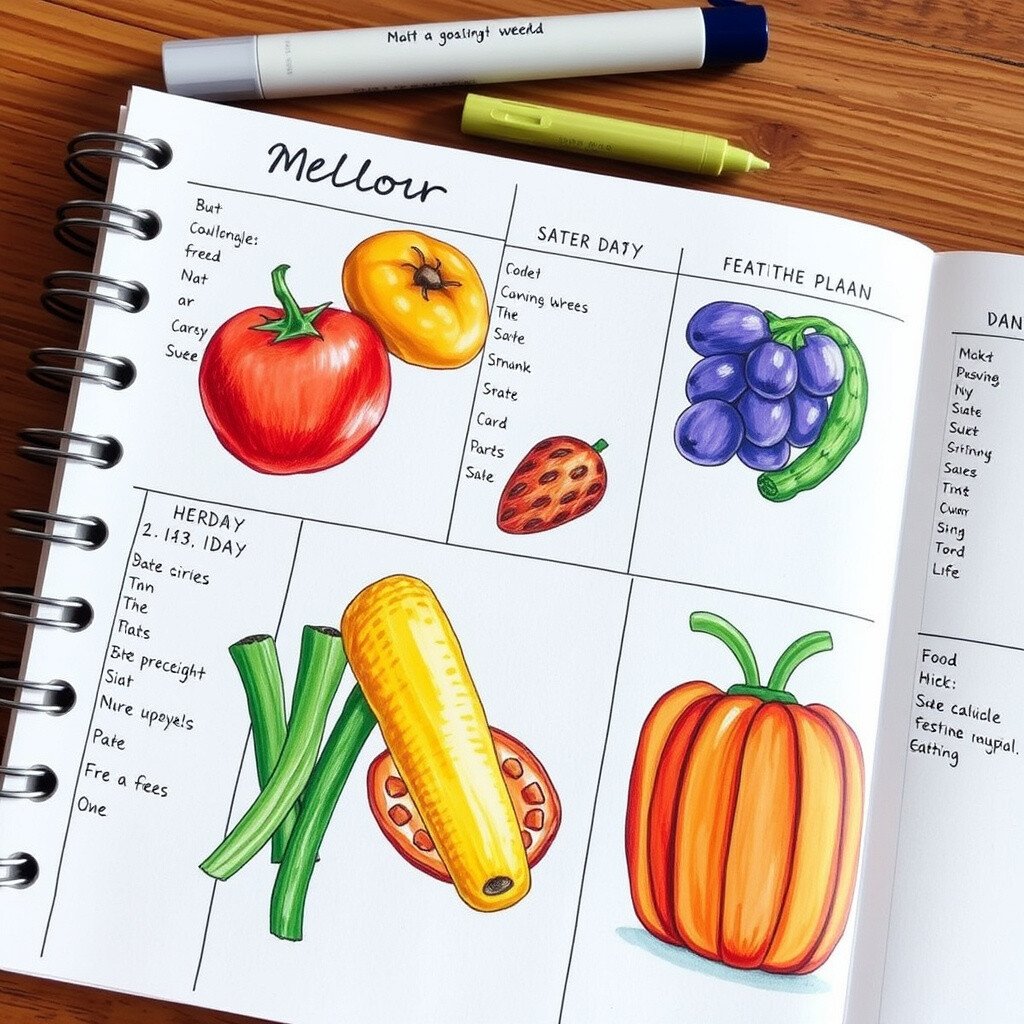 Matt a goalingt weeld
Mellour
But
Caulongle:
freed
Nat
ar
Carsy
Suee
SATER DATY
Codet
Coning wrees
The
Sate
Smunk
Srate
Card
Parts
Sale
FEATITHE PLAAN
HERDAY
2. 143. IDAY
Bate ciries
Tnn
The
Flats
Bte preceight
Siat
Nure upoyels
Pate
Fre a fees
One
DAN
Mokt
Pusving
Ny
Siate
Suet
Sales
Tint
Cwer
Sing
Tord
Life
Food
Hick:
Sate calicle
Festine
Eatting